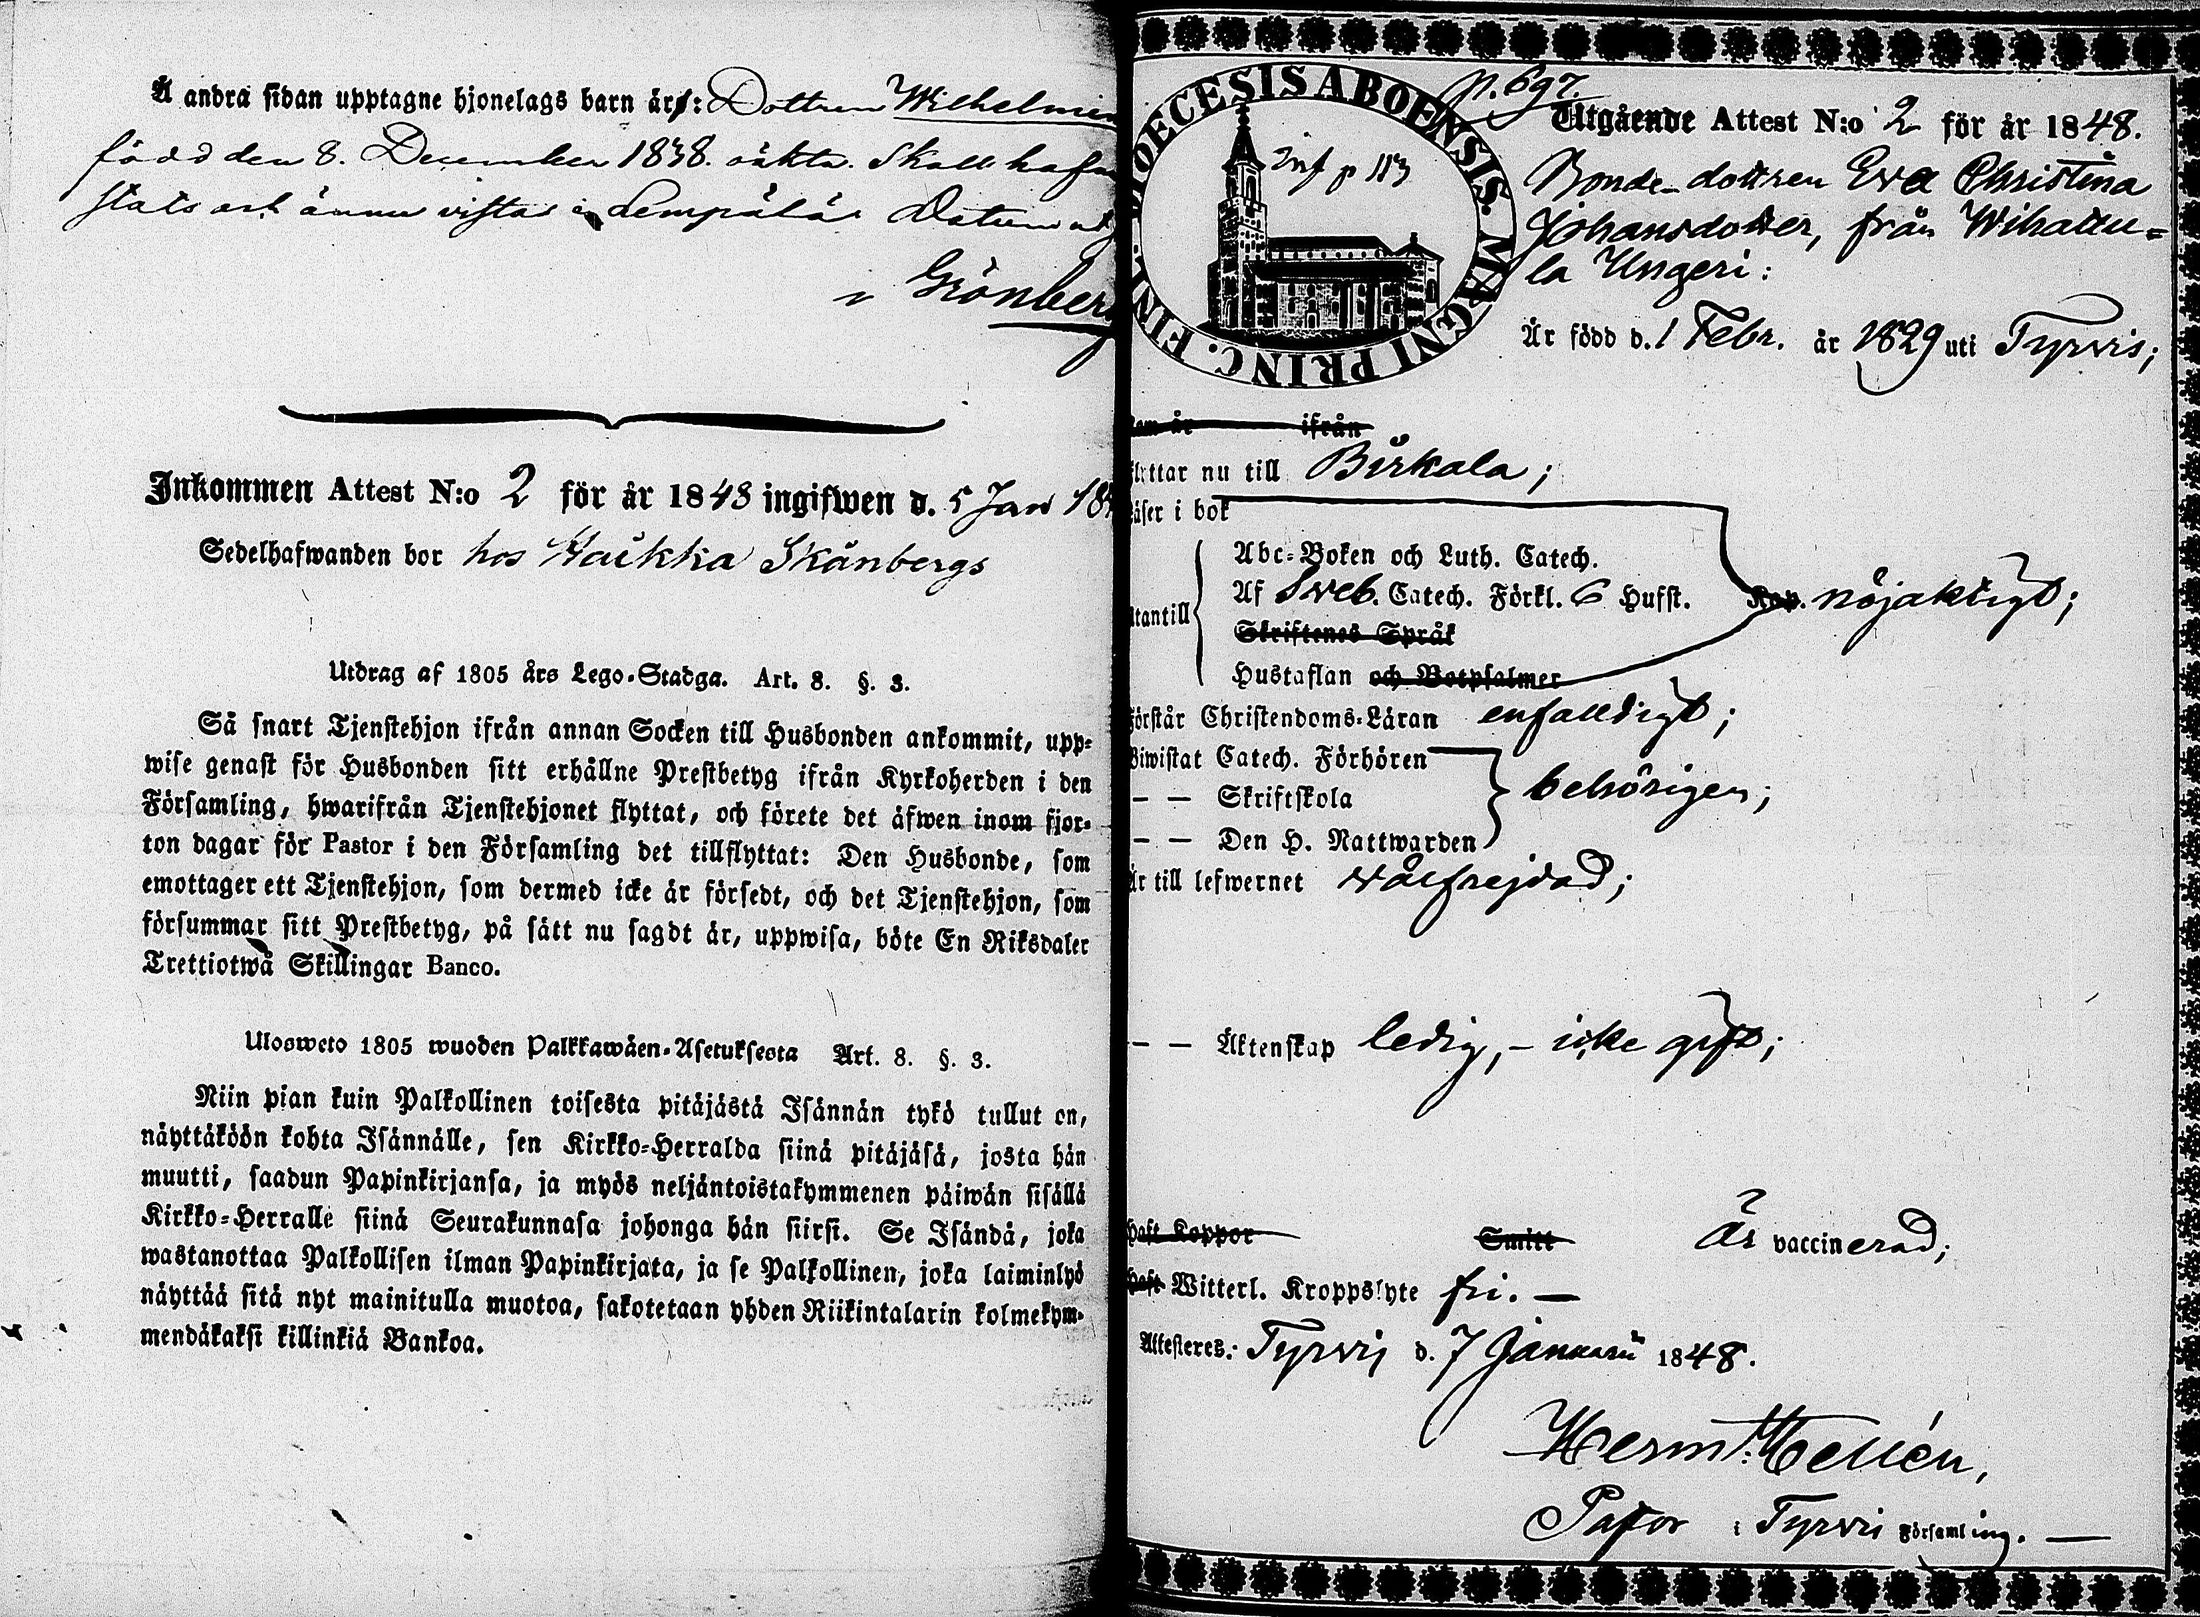 Å andra sidan upptagne hjonelags barn är: Dottren Wilhelmin
född den 8. December 1838. äkta. Skall hafva
stats ort ännu vistas i Lempälä. Datum ut
Grönberg
Inkommen Attest N:o 2 för år 1848 ingifwen d. 5 Jan 18
Sedelhafwanden bor hos Haikka Skånbergs
Utdrag af 1805 års Lego-Stadga. Art. 8. §. 3.
Så snart Tjenstehjon ifrån annan Socken till Husbonden ankommit, upp-
wise genast för Husbonden sitt erhållne Prestbetyg ifrån Kyrkoherden i den
Församling, hwarifrån Tjenstehjonet flyttat, och förete det äfwen inom fjor-
ton dagar för Pastor i den Församling det tillflyttat: Den Husbonde, som
emottager ett Tjenstehjon, som dermed icke är försedt, och det Tjenstehjon, som
försummar sitt Prestbetyg, på sätt nu sagdt är, uppwisa, böte En Riksdaler
Trettiotwå Skillingar Banco.
Ulosweto 1805 wuoden Palkkawäen-Asetuksesta Art. 8. §. 3.
Niin pian kuin Palkollinen toisesta pitäjästä Isännän tykö tullut on,
näyttäköön kohta Isännälle, sen Kirkko-Herralda siinä pitäjäsä, josta hän
muutti, saadun Papinkirjansa, ja myös neljäntoistakymmenen päiwän sisällä
Kirkko-Herralle siinä Seurakunnasa johonga hän siirsi. Se Isändä, joka
wastanottaa Palkollisen ilman Papinkirjata, ja se Palkollinen, joka laiminlyö
näyttää sitä nyt mainitulla muotoa, sakotetaan yhden Riikintalarin kolmekym-
mendäkaksi killinkiä Bankoa.
DIOECESIS ABOENSIS. MAGNI PRINC. FINL.
Inf p 113
p. 697.
Utgående Attest N:o 2 för år 1848.
Bonde-dottren Eva Christina
Johansdotter, från Wihattu=
la Ungeri:
Är född d. 1 Febr. år 1829 uti Tyrvis;
Kom år ifrån
Flyttar nu till Birkala;
Läser i bok
Abc-Boken och Luth. Catech.
Utantill Af Sveb. Catech. Förkl. 6 Hufst. Kap. nöjaktigt;
Skriftenes Språk
Hustaflan och Botpsalmer
Förstår Christendoms-Läran enfaldigt;
Biwistat Catech. Förhören
— — Skriftskola behörigen;
— — Den H. Nattwarden
Är till lefwernet välfrejdad;
— — Äktenskap ledig, – icke gift;
Haft Koppor Smitt Är vaccinerad;
Haft Witterl. Kroppslyte fri. —
Attesteres: Tyrvis d. 7 Januarii 1848.
Herm: Hellén,
Pastor i Tyrvis Församling. —